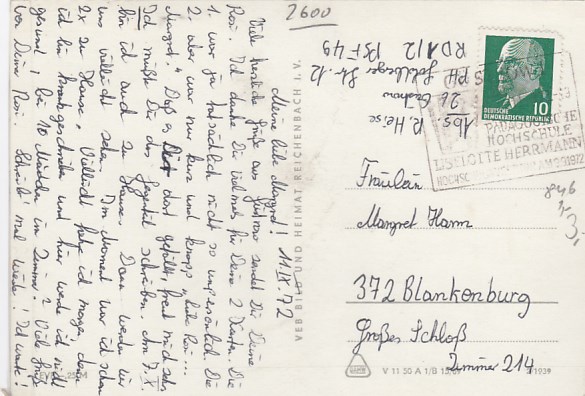 2600
Meine liebe Margret! 11.IX.72
Viele herzliche Grüße aus Güstrow sendet Dir Deine
Rosi. Ich danke Dir vielmals für Deine 2 Karten. Die
1. war ja tatsächlich nicht so unpersönlich. Die
2. aber war nur kurz und knapp „Liebe Rosi...
Margret." Daß es Dir dort gefällt, freut mich sehr.
Ich mußte Dir das Gegenteil schreiben. Am 7.X.
bin ich auch zu Hause. Dann werden wir
uns vielleicht sehen. Im Moment war ich schon
2x zu Hause. Vielleicht fahre ich morgen, denn
ich bin krankgeschrieben und hier werde ich nicht
gesund, bei 10 Mädchen im Zimmer! Viele Grüße
von Deiner Rosi. Schreibt mal wieder! Ich warte!
Abs.: R. Heise
26 Güstrow
PH Goldberger Str. 12
RD 1/2 PSF 49
VEB BILD UND HEIMAT REICHENBACH I. V.
DEUTSCHE
DEMOKRATISCHE REPUBLIK
10
PÄDAGOGISCHE
HOCHSCHULE
LISELOTTE HERRMANN
1972
846
3,
Fräulein
Margret Harm
372 Blankenburg
Großes Schloß
Zimmer 214
V 11 50 A 1/B
1939